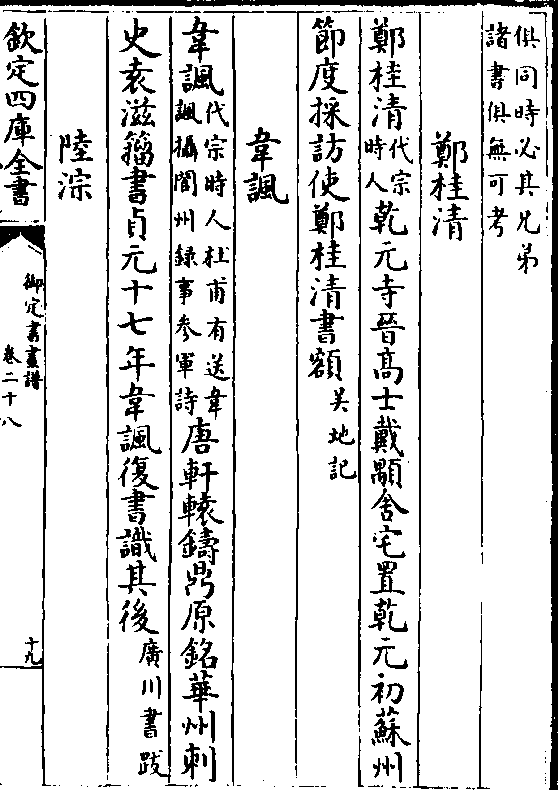 俱同時必其兄弟
諸書俱無可考
鄭桂清
鄭桂清代宗時人乾元寺晉髙士戴顒舍宅置乾元初蘇州
節度採訪使鄭桂清書額吴地記
韋諷
韋諷代宗時人杜甫有送韋諷攝閬州録事參軍詩唐軒轅鑄鼎原銘華州刺
史袁滋籀書貞元十七年韋諷復書識其後廣川書跋
陸淙
欽定四庫全書
御定書畫譜
卷二十八
十九